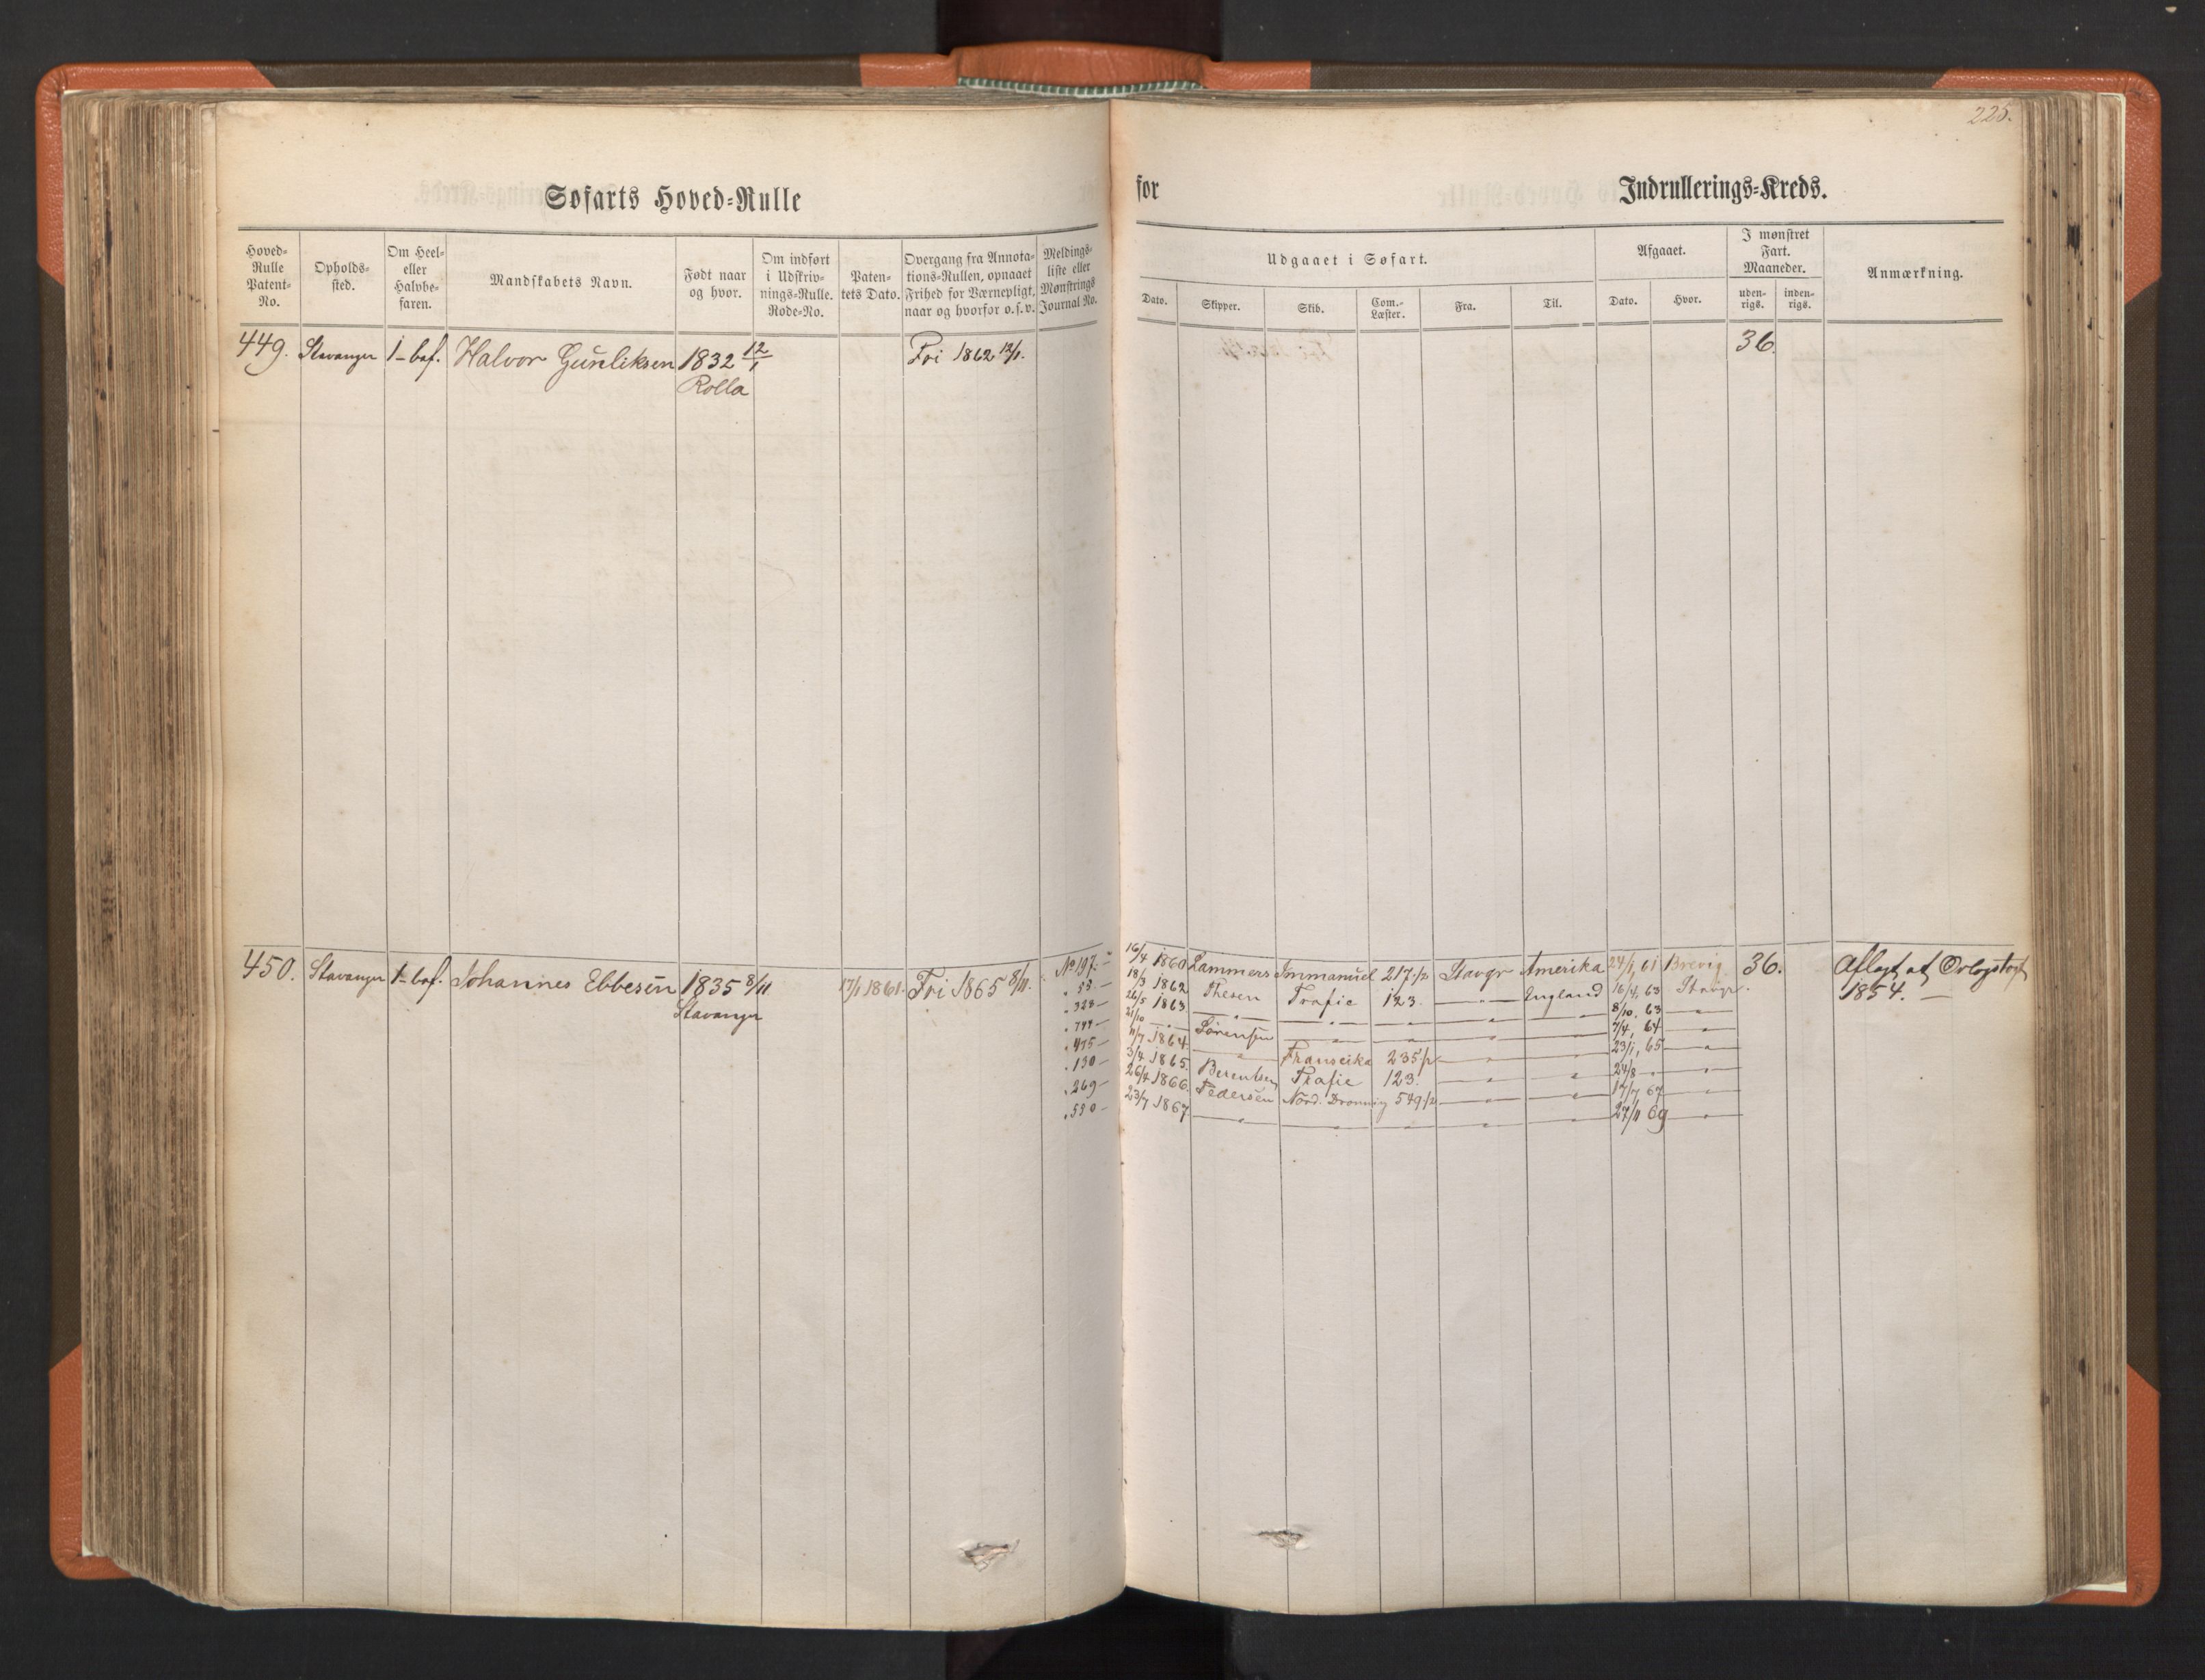 225.
Søfarts Hoved=Rulle for Indrullerings=Kreds.
Hoved=Rulle Patent=No.
Opholds=sted.
Om Heel= eller Halvbe=faren.
Mandskabets Navn.
Født naar og hvor.
Om indført i Udskriv=nings=Rulle. Rode=No.
Paten=tets Dato.
Overgang fra Annota=tions=Rullen, opnaaet Frihed for Værnepligt, naar og hvorfor o. s. v.
Meldings=liste eller Mønstrings Journal No.
Udgaaet i Søfart.
Dato. Skipper. Skib. Com.=Læster. Fra. Til.
Afgaaet.
Dato. Hvor.
I mønstret Fart. Maaneder.
uden=rigs. inden=rigs.
Anmærkning.
449. Stavanger 1-baf. Halvor Gunliksen 1832 12/1 Fri 1862 12/1. 36.
Rolla
450. Stavanger 1-baf. Johannes Ebbesen 1835 8/11 17/1 1861. Fri 1865 8/11. No 197. 16/4 1860 Lammers Immanuel 217 1/2 Stavgr Amerika 24/1, 61 Brevig 36. Aflagt et Orlogstogt
Stavanger " 59 – 18/3 1862 Thesen Trafic 123. — " — England 16/4, 63 Stavgr. 1854. —
" 328 – 26/5 1863 — " — — " — — " — — " — — " — 8/10. 63 — " —
" 799 – 21/10 — " — Sørensen — " — — " — — " — — " — 7/4, 64 — " —
" 475 – 11/7 1864. — " — Franscika 235 1/2 — " — — " — 23/1, 65 — " —
" 130 – 3/4 1865. Berentsen Trafic 123. — " — — " — 24/8 – " — " —
" 269 – 26/4 1866. Pedersen Nord. Dronning 549 1/2 — " — — " — 17/7 67 — " —
" 550 – 23/7 1867 — " — — " — — " — — " — — " — 27/11 69 — " —